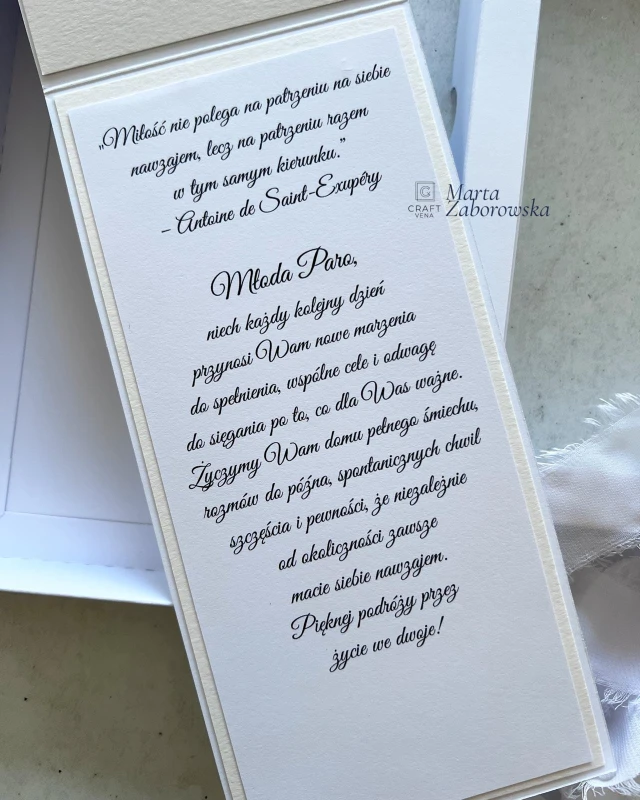 „Miłość nie polega na patrzeniu na siebie
nawzajem, lecz na patrzeniu razem
w tym samym kierunku.”
– Antoine de Saint-Exupéry
CRAFT
VENA
Marta
Zaborowska
Młoda Paro,
niech każdy kolejny dzień
przynosi Wam nowe marzenia
do spełnienia, wspólne cele i odwagę
do sięgania po to, co dla Was ważne.
Życzymy Wam domu pełnego śmiechu,
rozmów do późna, spontanicznych chwil
szczęścia i pewności, że niezależnie
od okoliczności zawsze
macie siebie nawzajem.
Pięknej podróży przez
życie we dwoje!